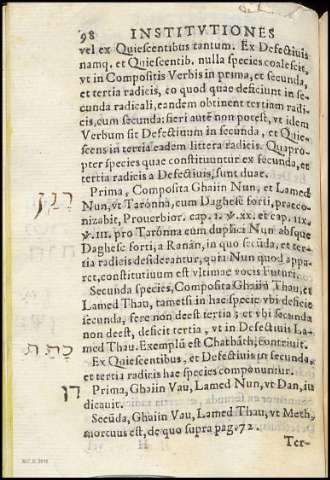 98 INSTITVTIONES
vel ex Quiescentibus tantum. Ex Defectiuis
namq. et Quiescentib. nulla species coalescit,
vt in Compositis Verbis in prima, et secunda,
et tertia radicis, eo quod quae deficiunt in se-
cunda radicali, eandem obtinent tertiam radi-
cis, cum secunda: fieri autē non potest, vt idem
Verbum sit Defectiuum in secunda, et Quie-
scens in tertia eadem littera radicis. Quapro-
pter species quae constituuntur ex secunda, et
tertia radicis a Defectiuis, sunt duae.
Prima, Composita Ghaiin Nun, et Lamed
רָנַן Nun, vt Tarónna, cum Daghesc forti, praeco-
nizabit, Prouerbior. cap. 1. ℣. xx. et cap. iix.
℣. iii. pro Tarónna cum duplici Nun absque
Daghesc forti, a Ranán, in quo secūda, et ter-
tia radicis desiderantur, quia Nun quod appa-
ret, constitutiuum est vltimae vocis Futuri.
Secunda species, Composita Ghaiin Thau, et
Lamed Thau, tametsi in hac specie vbi deficit
secunda, fere non deest tertia; et vbi secunda
non deest, deficit tertia, vt in Defectiuis La-
כָּתַת med Thau. Exemplū est Chatháth, contriuit.
Ex Quiescentibus, et Defectiuis in secunda,
et tertia radicis hae species componuntur.
דן Prima, Ghaiin Vau, Lamed Nun, vt Dan, iu
dicauit.
Secūda, Ghaiin Vau, Lamed Thau, vt Meth,
mortuus est, de quo supra pag. 72.
Ter-